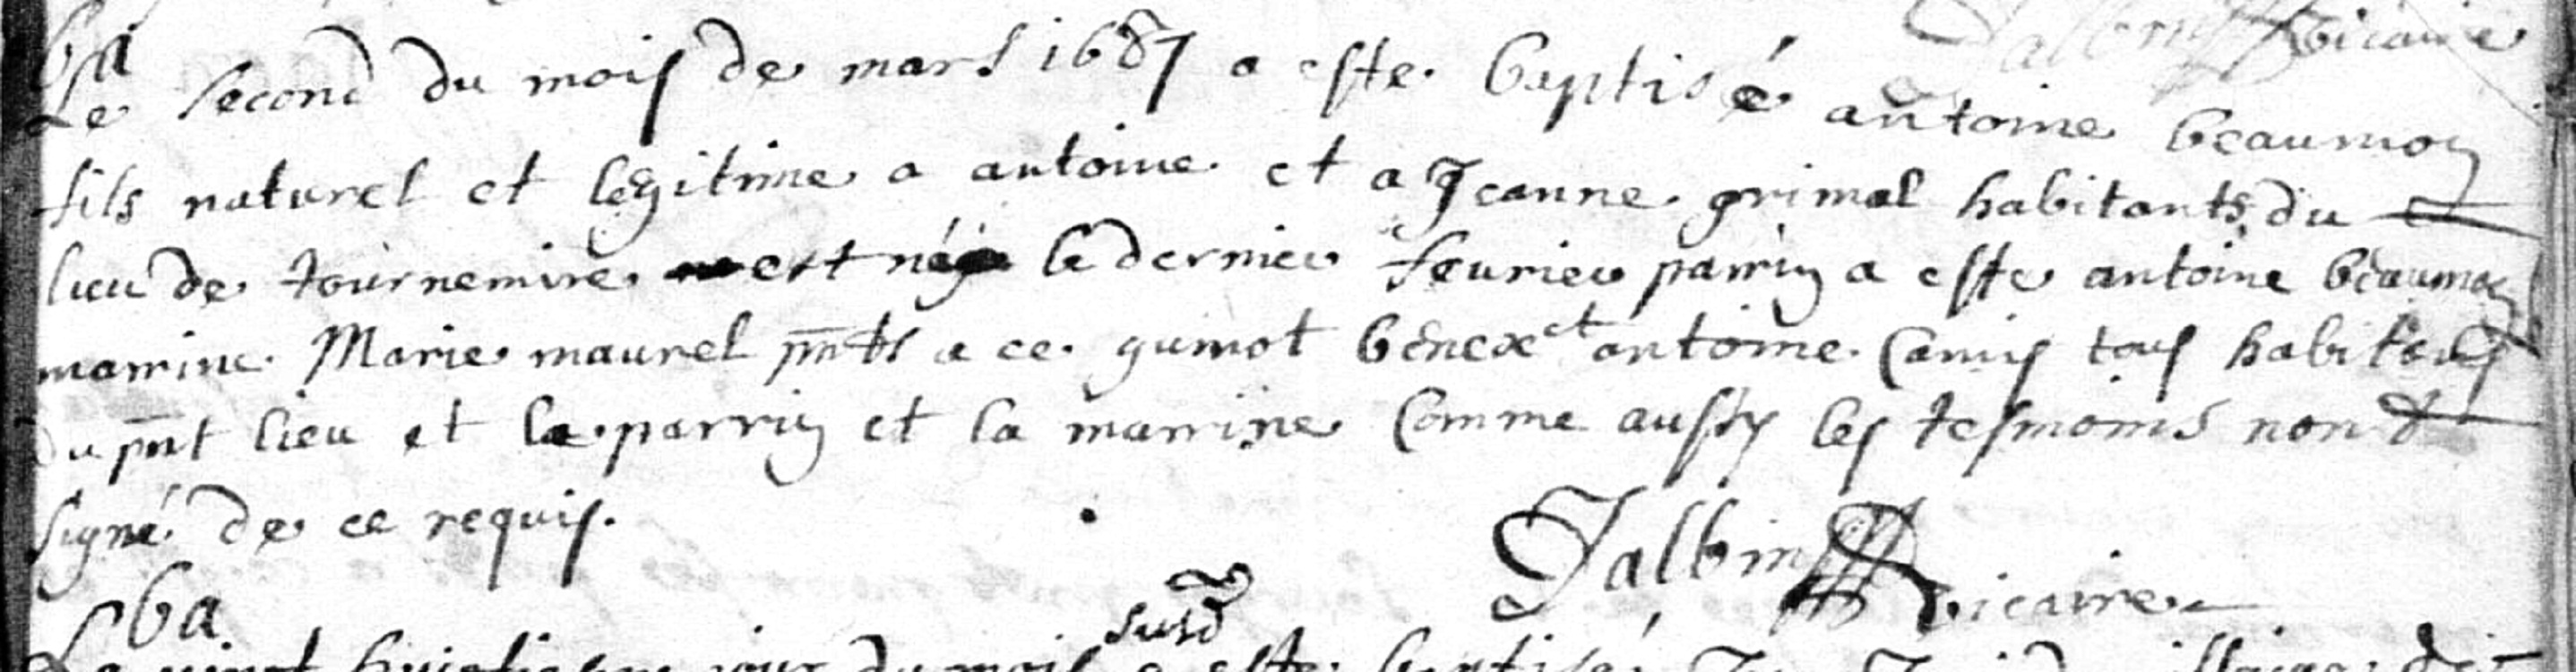 Jalbin vicaire
ba
Le second du mois de mars 1687 a este baptisé antoine beaumon
fils naturel et legitime a antoine et a Jeanne grimal habitants du
lieu de tournemire est né le dernier feurier parrin a este antoine beaumon
marrine Marie maurel pnts a ce guinot benex et antoine Camis tous habitans
du pnt lieu et le parrin et la marrine Comme aussy les tesmoins non
signé de ce requis.
Jalbin vicaire
ba
susd
Le vingt huictiesme jour du mois a este baptisé